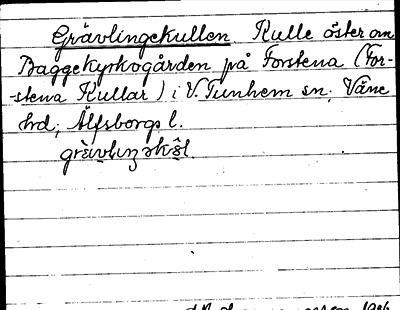 Grävlingekullen Kulle öster om
Baggekyrkogården på Forstena (For-
-stena Kullar) i V. Tunhem sn; Väne
hrd; Älfsborgs l.